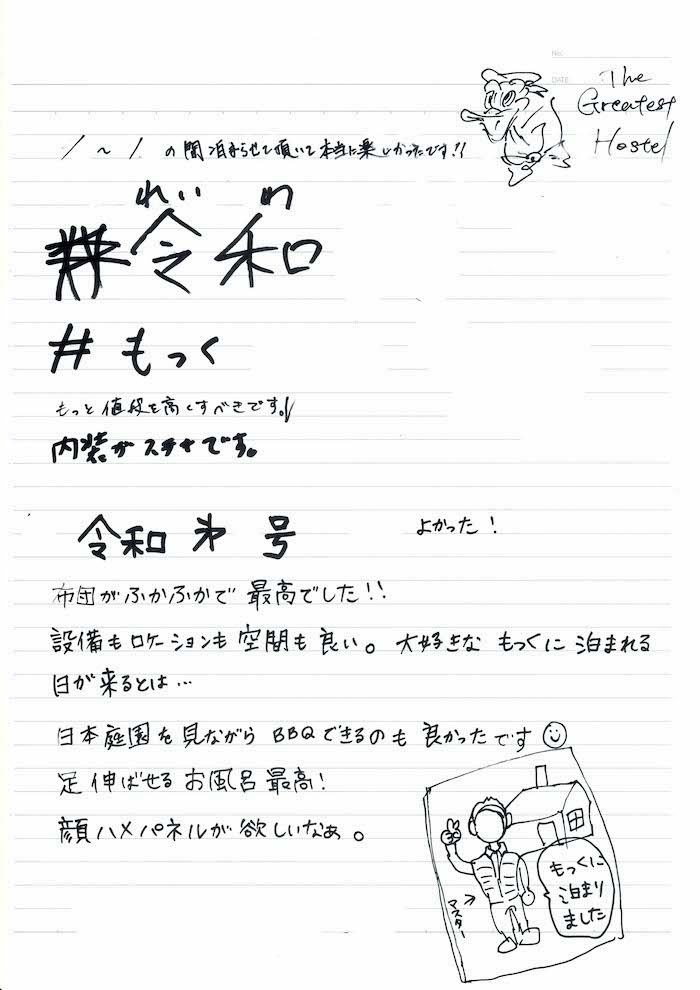 No.
DATE
The
Greatest
Hostel
/ ~ / の間泊まらせて頂いて本当に楽しかったです!!
れい わ
#令和
#もっく
もっと値段を高くすべきです。
内装がステキです。
令和 号
よかった!
布団がふかふかで 最高でした!!
設備もロケーションも空間も良い。大好きな もっくに 泊まれる
日が来るとは…
日本庭園を見ながら BBQできるのも 良かったです
足 伸ばせる お風呂 最高!
顔ハメパネルが 欲しいなぁ。
もっくに
泊まり
ました
マスター